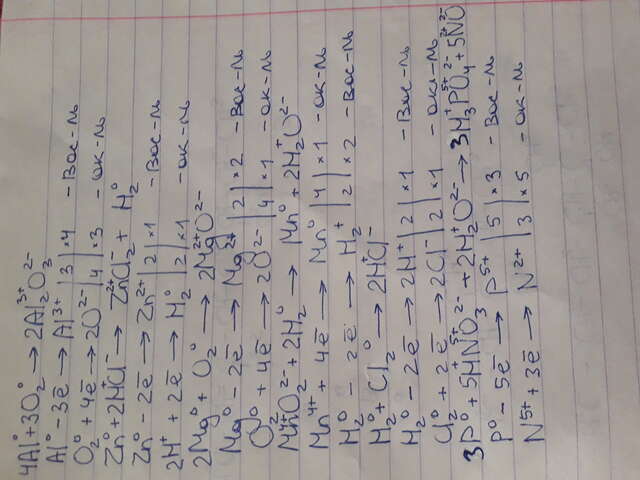 4Al⁰ + 3O₂⁰ → 2Al₂³⁺O₃²⁻
Al⁰ - 3ē → Al³⁺ | 3 | ×4 - вос-ль
O₂⁰ + 4ē → 2O²⁻ | 4 | ×3 - ок-ль
Zn⁰ + 2H⁺Cl⁻ → Zn²⁺Cl₂⁻ + H₂⁰
Zn⁰ - 2ē → Zn²⁺ | 2 | ×1 - вос-ль
2H⁺ + 2ē → H₂⁰ | 2 | ×1 - ок-ль
2Mg⁰ + O₂⁰ → 2Mg²⁺O²⁻
Mg⁰ - 2ē → Mg²⁺ | 2 | ×2 - вос-ль
O₂⁰ + 4ē → 2O²⁻ | 4 | ×1 - ок-ль
Mn⁴⁺O₂²⁻ + 2H₂⁰ → Mn⁰ + 2H₂⁺O²⁻
Mn⁴⁺ + 4ē → Mn⁰ | 4 | ×1 - ок-ль
H₂⁰ - 2ē → H₂⁺ | 2 | ×2 - вос-ль
H₂⁰ + Cl₂⁰ → 2H⁺Cl⁻
H₂⁰ - 2ē → 2H⁺ | 2 | ×1 - вос-ль
Cl₂⁰ + 2ē → 2Cl⁻ | 2 | ×1 - ок-ль
3P⁰ + 5H⁺N⁵⁺O₃²⁻ + 2H₂⁺O²⁻ → 3H₃⁺P⁵⁺O₄²⁻ + 5N²⁺O²⁻
P⁰ - 5ē → P⁵⁺ | 5 | ×3 - вос-ль
N⁵⁺ + 3ē → N²⁺ | 3 | ×5 - ок-ль